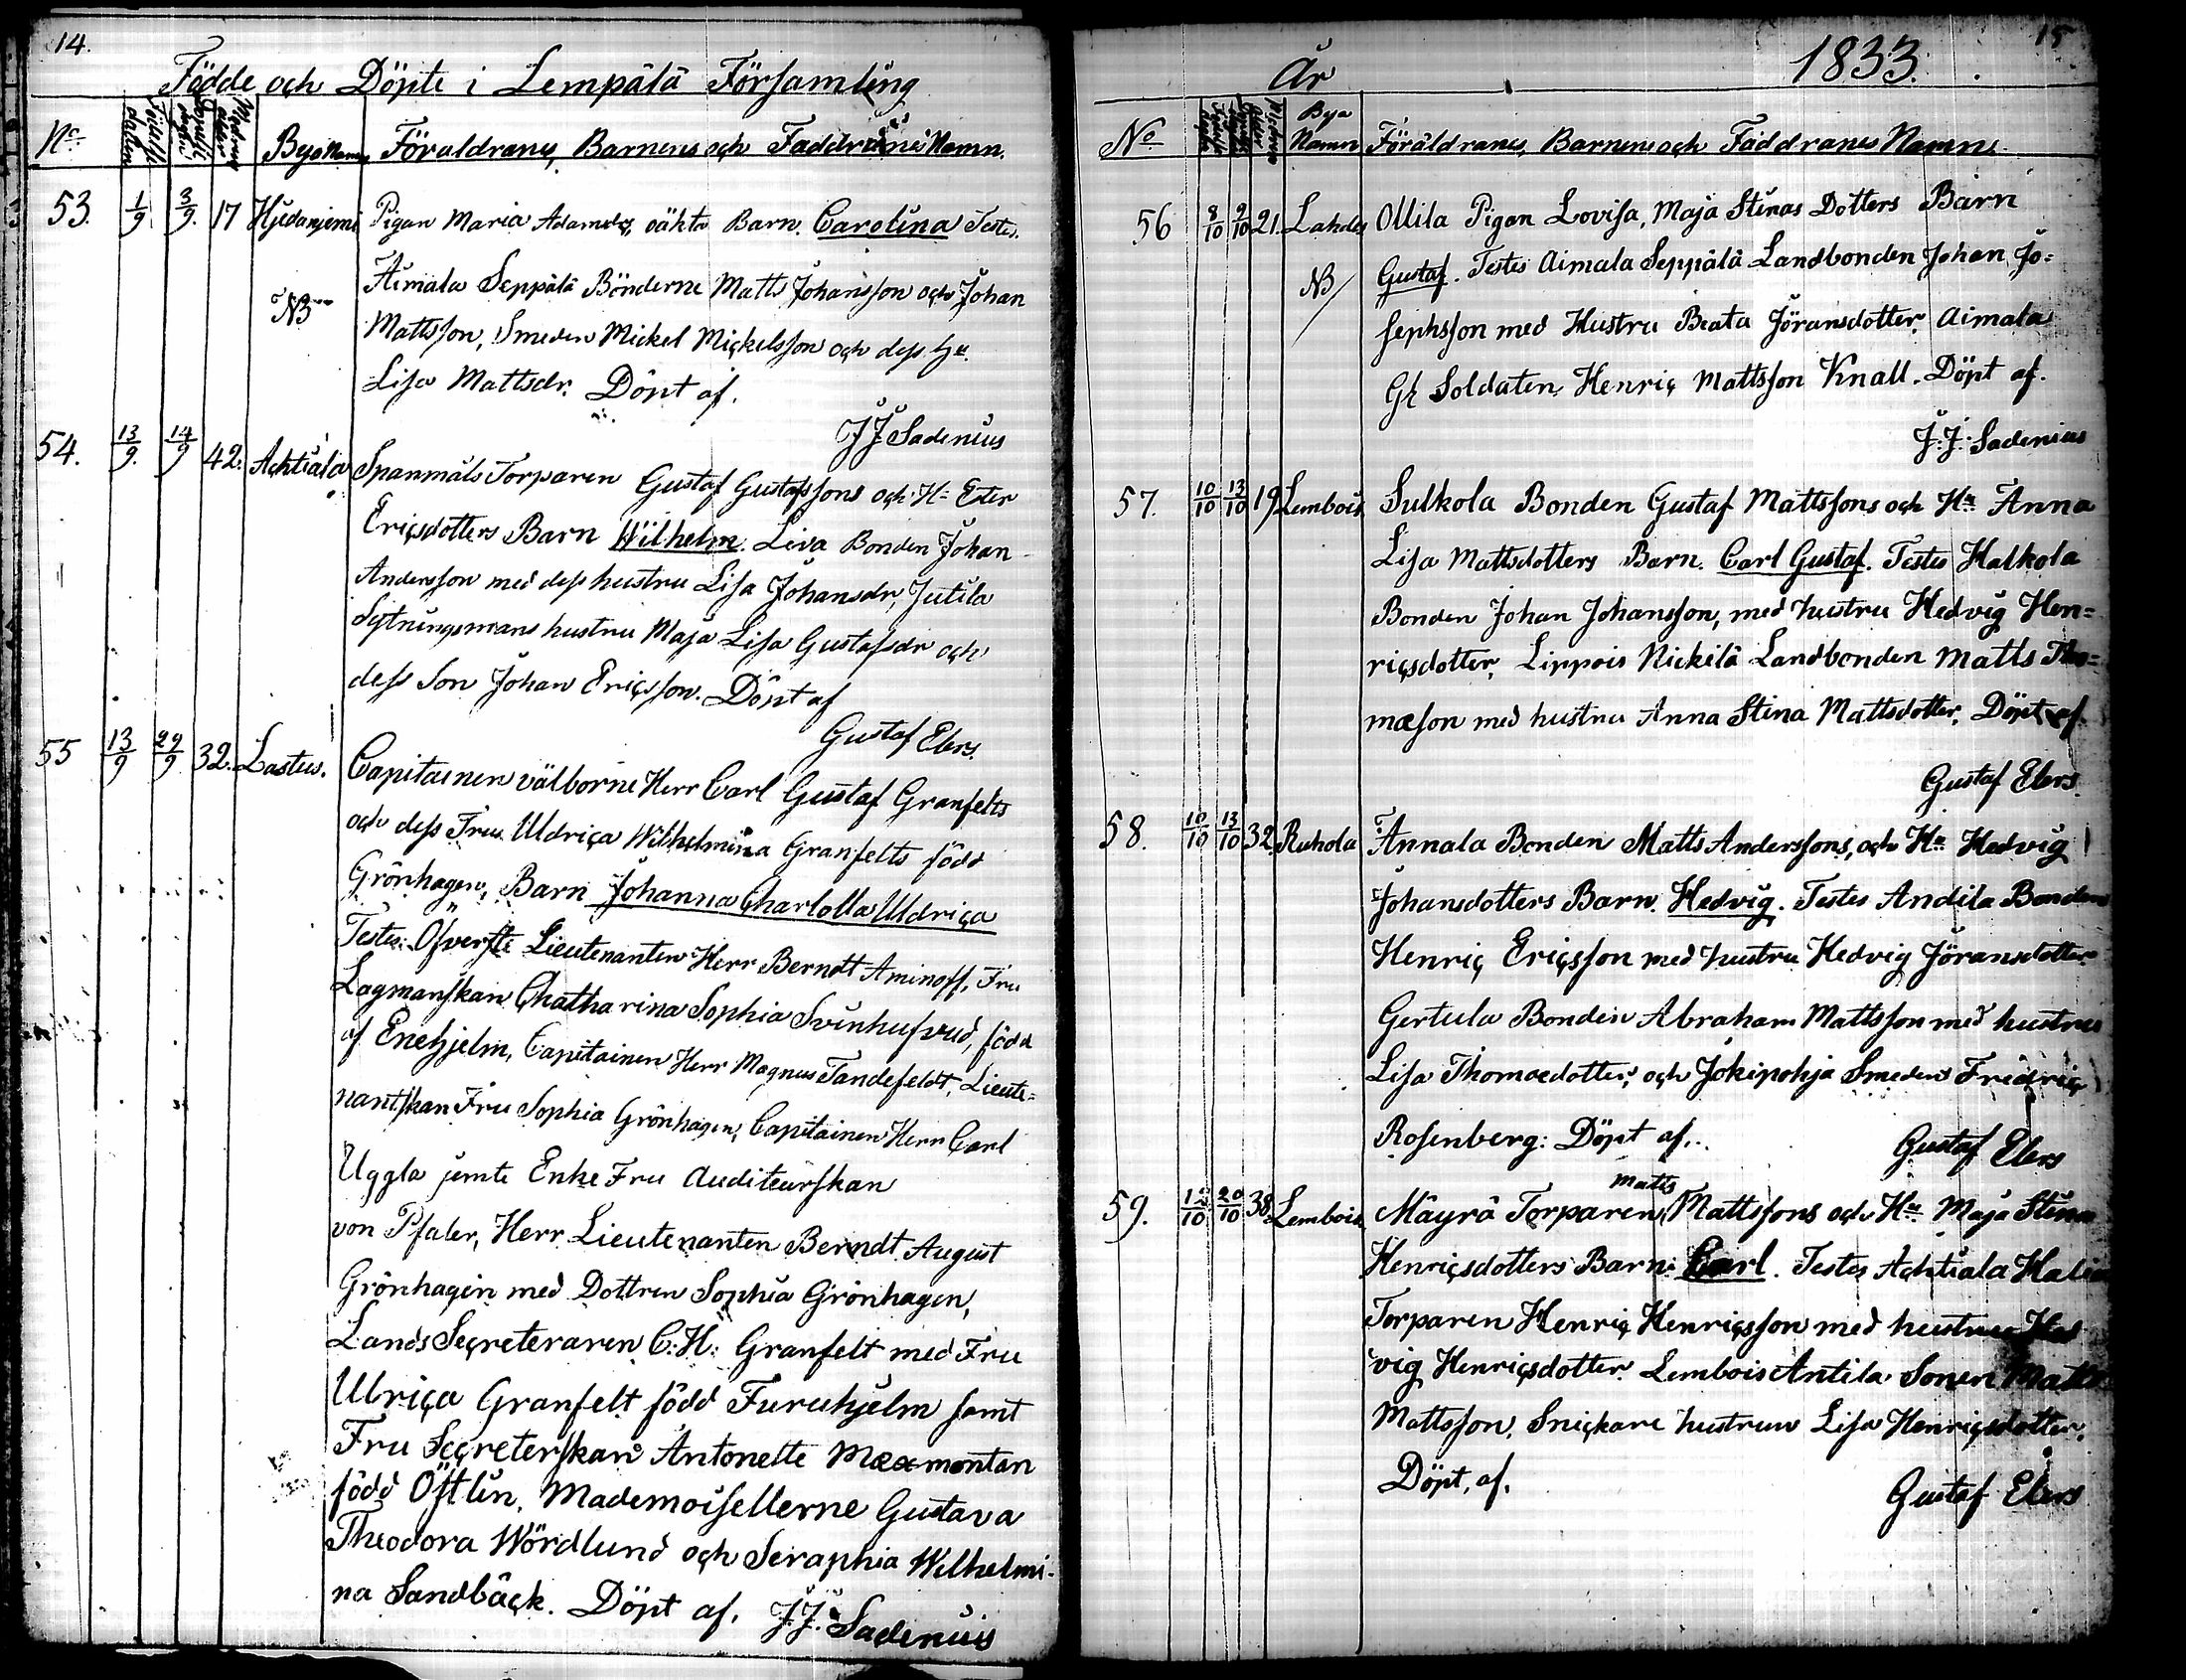 14.
Födde och Döpte i Lempälä Församling
No
Födelse dagen
Bys Namn
Föräldrans, Barnens och Faddrarnes Namn.
53. 1/9 3/9. 17 Hjedanjemi Pigan Maria Adamsdrs, oäkta Barn. Carolina Testes.
Aimala Seppälä Bönderne Matts Johansson och Johan
NB
Mattsson, Smeden Mickel Mickelsson och dess hu
Lisa Mattsdr. Döpt af.
J J Sadenius
54. 13/9. 14/9 42. Achtiala Spanmåls Torparen Gustaf Gustafssons och H: Ester
Ericsdotters Barn Wilhelm. Liva Bonden Johan
Andersson med dess hustru Lisa Johansdr, Jutila
Sytningsmans hustru Maja Lisa Gustafsdr och
dess Son Johan Ericsson. Döpt af
Gustaf Elers.
55 13/9 29/9 32. Lastus. Capitainen välborne Herr Carl Gustaf Granfelts
och dess Fru Uldrica Wilhelmina Granfelts född
Grönhagen, Barn Johanna Charlotta Uldrica
Testes: Öfverste Lieutenanten Herr Berndt Aminoff, Fru
Lagmanskan Chatharina Sophia Svinhufvud, född
af Enehjelm, Capitainen Herr Magnus Tandefeldt, Lieute=
nantskan Fru Sophia Grönhagen, Capitainen Herr Carl
Uggla jemte Enke Fru Auditeurskan
von Pfaler, Herr Lieutenanten Berndt August
Grönhagen med Dottren Sophia Grönhagen,
Lands Secreteraren C: H: Granfelt med Fru
Ulrica Granfelt född Furuhjelm samt
Fru Secreterskan Antonette Mæxmontan
född Östlin, Mademoisellerne Gustava
Theodora Wördlund och Seraphia Wilhelmi-
na Sandbäck. Döpt af. J J. Sadenius
15
År 1833.
No
Bya Namn
Föräldranes, Barnens och Faddranes Namn.
56 8/10 9/10 21. Lahdes Ollila Pigan Lovisa, Maja Stinas Dotters Barn
NB Gustaf. Testes Aimala Seppälä Landbonden Johan Jo=
sephsson med Hustru Beata Jöransdotter, Aimala
Gl Soldaten Henric Mattsson Knall. Döpt af.
J. J. Sadenius
57. 10/10 13/10 19 Lembois Sulkola Bonden Gustaf Mattssons och Hu Anna
Lisa Mattsdotters Barn. Carl Gustaf. Testes Halkola
Bonden Johan Johansson, med hustru Hedvig Hen=
ricsdotter, Lippois Nickilä Landbonden Matts Tho=
mæson med hustru Anna Stina Mattsdotter, Döpt af.
Gustaf Elers
58. 10/10 13/10 32. Ruhola Annala Bonden Matts Anderssons, och Hu Hedvig
Johansdotters Barn. Hedvig. Testes Andila Bonden
Henric Ericsson med hustru Hedvig Jöransdotter
Gertula Bonden Abraham Mattsson med hustru
Lisa Thomædotter, och Jokipohja Smeden Fredric
Rosenberg: Döpt af.
Gustaf Elers
matts
59. 20/10 38. Lembois Mäyrä Torparen Mattssons och Hu Maja Stina
Henricsdotters Barn: Carl. Testes Achtiala
Torparen Henric Henricsson med hustru Hed
vig Henricsdotter. Lembois Antila Sonen Matts
Mattsson, Snickare hustrun Lisa Henricsdotter.
Döpt, af.
Gustaf Elers